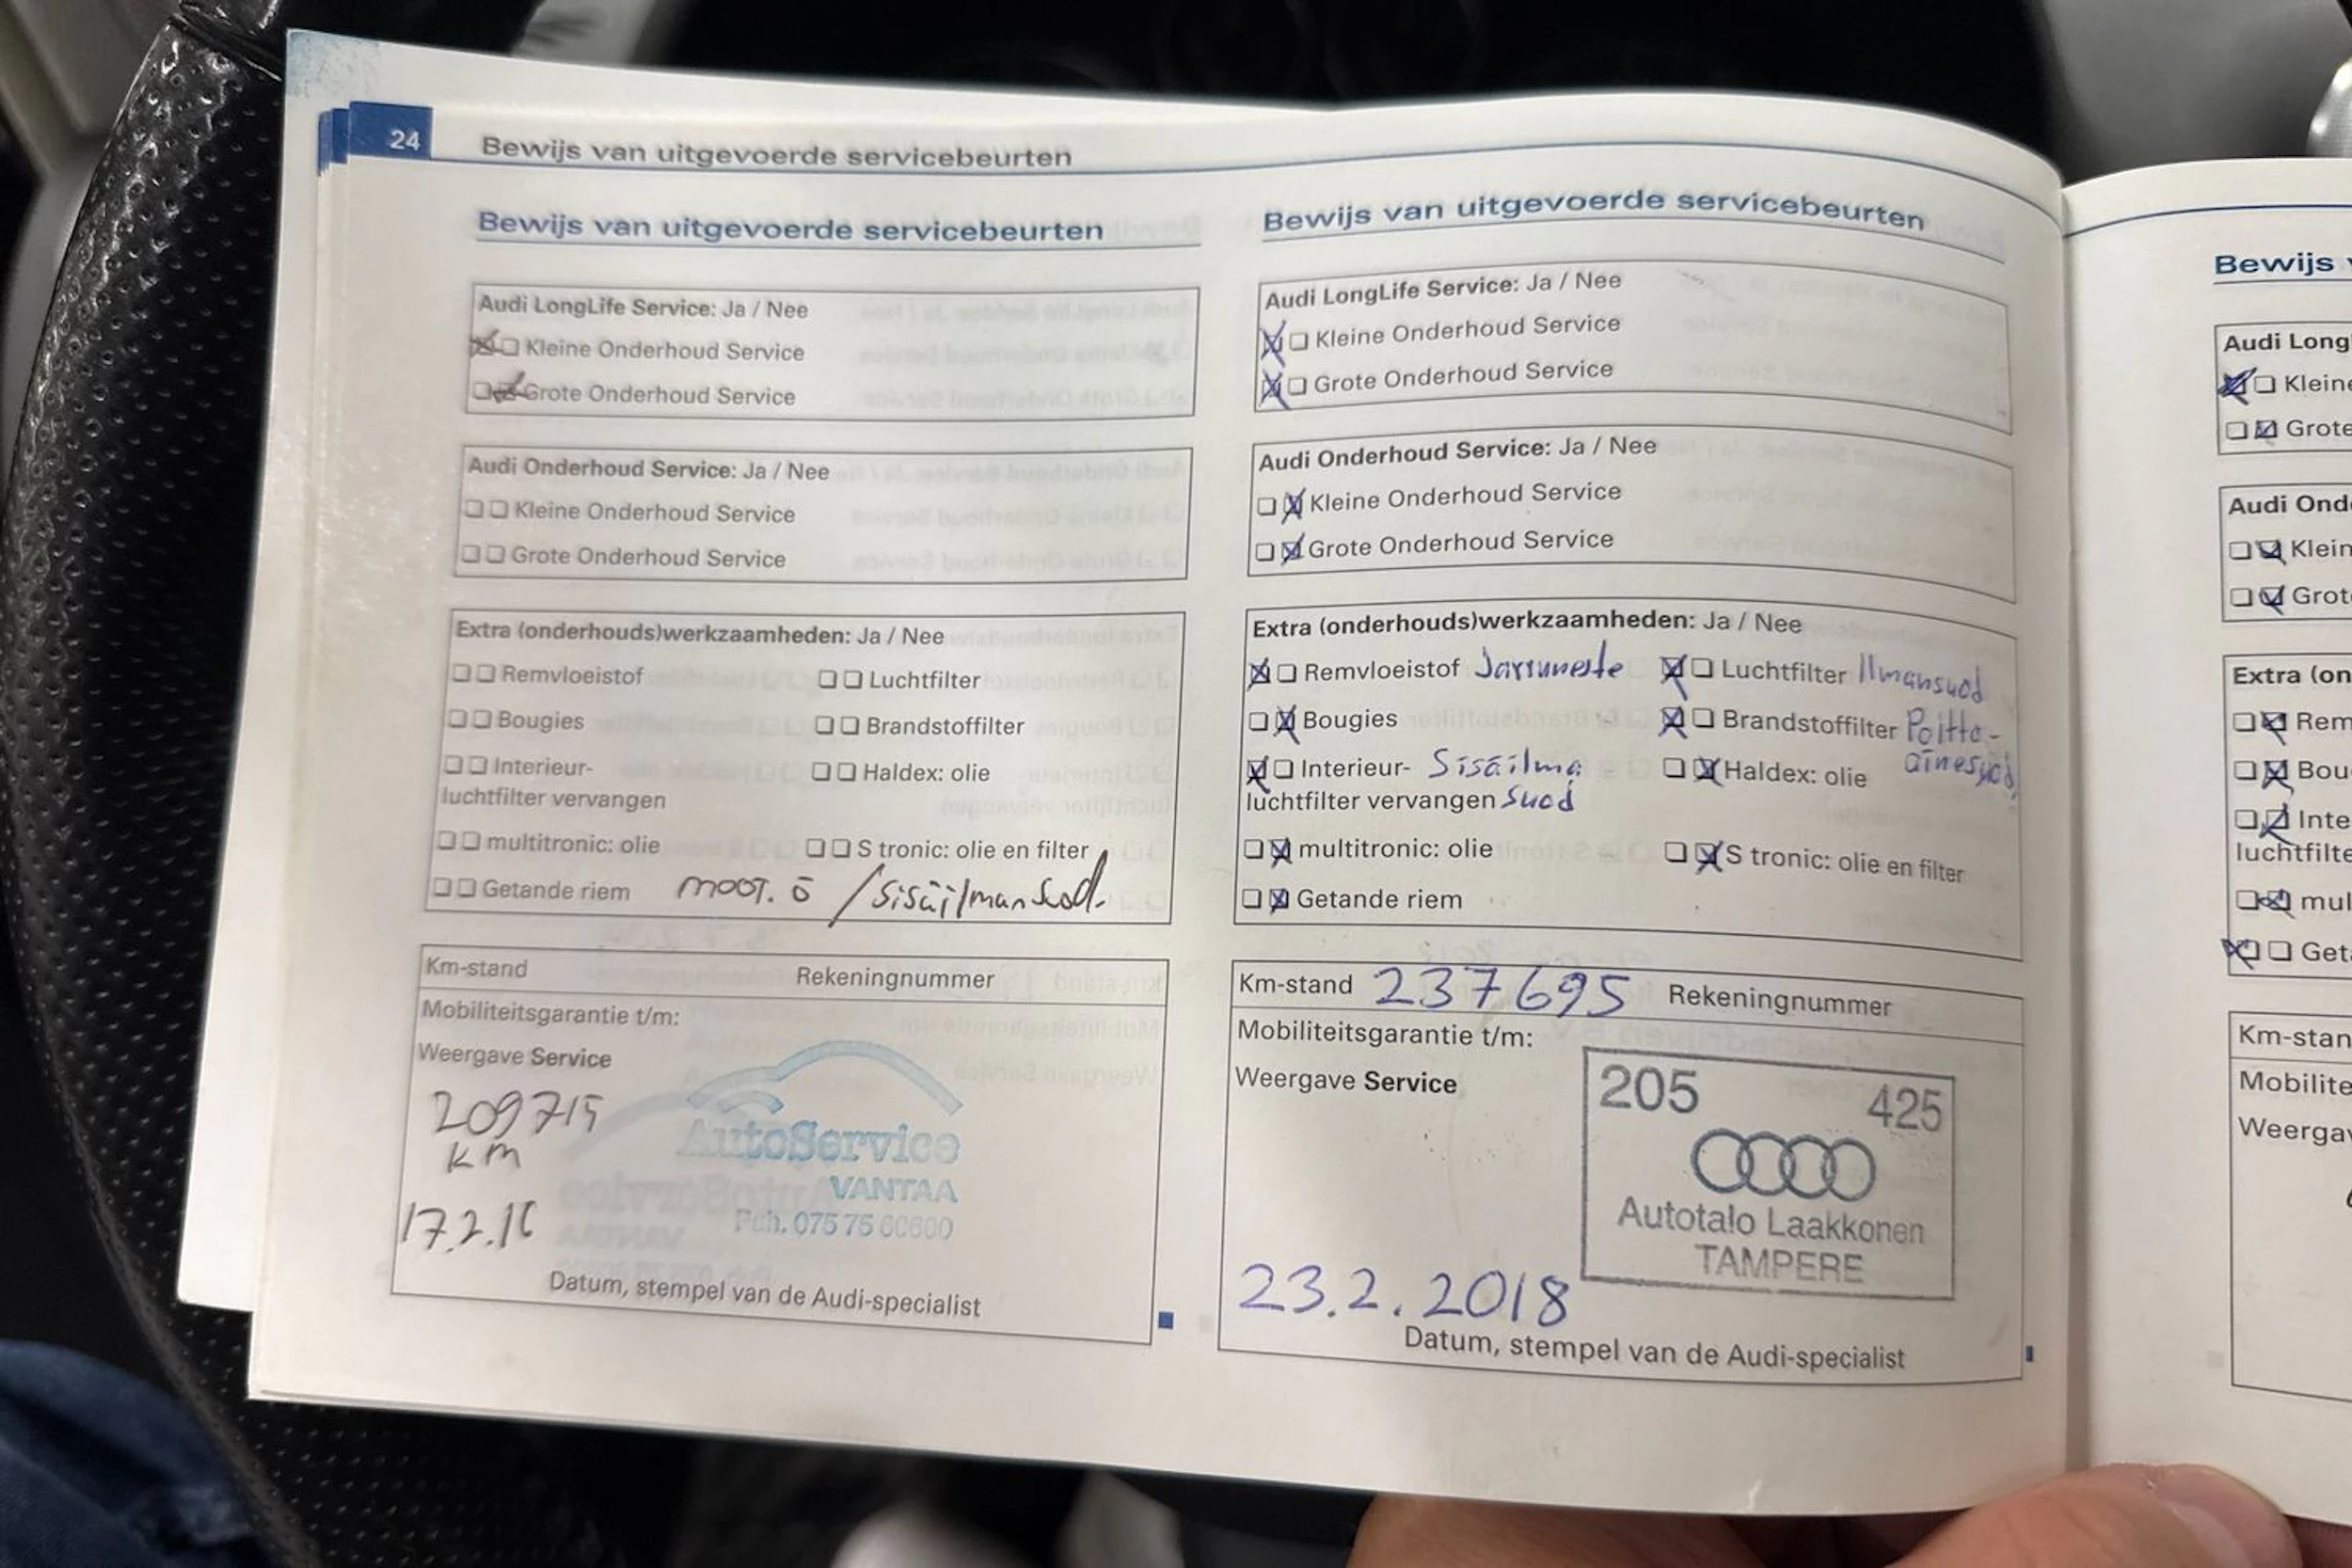 24
Bewijs van uitgevoerde servicebeurten
Bewijs van uitgevoerde servicebeurten
Audi LongLife Service: Ja / Nee
Kleine Onderhoud Service
Grote Onderhoud Service
Audi Onderhoud Service: Ja / Nee
Kleine Onderhoud Service
Grote Onderhoud Service
Extra (onderhouds)werkzaamheden: Ja / Nee
Remvloeistof Luchtfilter
Bougies Brandstoffilter
Interieur- Haldex: olie
luchtfilter vervangen
multitronic: olie S tronic: olie en filter
Getande riem moot. ö / Sisäilmansuod.
Km-stand Rekeningnummer
Mobiliteitsgarantie t/m:
Weergave Service
209715
km
AutoService
VANTAA
Puh. 075 75 60600
17.2.16
Datum, stempel van de Audi-specialist
Bewijs van uitgevoerde servicebeurten
Audi LongLife Service: Ja / Nee
Kleine Onderhoud Service
Grote Onderhoud Service
Audi Onderhoud Service: Ja / Nee
Kleine Onderhoud Service
Grote Onderhoud Service
Extra (onderhouds)werkzaamheden: Ja / Nee
Remvloeistof Jarruneste Luchtfilter Ilmansuod
Bougies Brandstoffilter Poltto-
Interieur- Sisäilma Haldex: olie ainesuod.
luchtfilter vervangen suod
multitronic: olie S tronic: olie en filter
Getande riem
Km-stand 237695 Rekeningnummer
Mobiliteitsgarantie t/m:
Weergave Service
205 425
Autotalo Laakkonen
TAMPERE
23.2.2018
Datum, stempel van de Audi-specialist
Bewijs
Audi Long
Kleine
Grote
Audi Ond
Klein
Grot
Extra (on
Rem
Bou
Inte
luchtfilte
mul
Get
Km-stan
Mobilite
Weerga